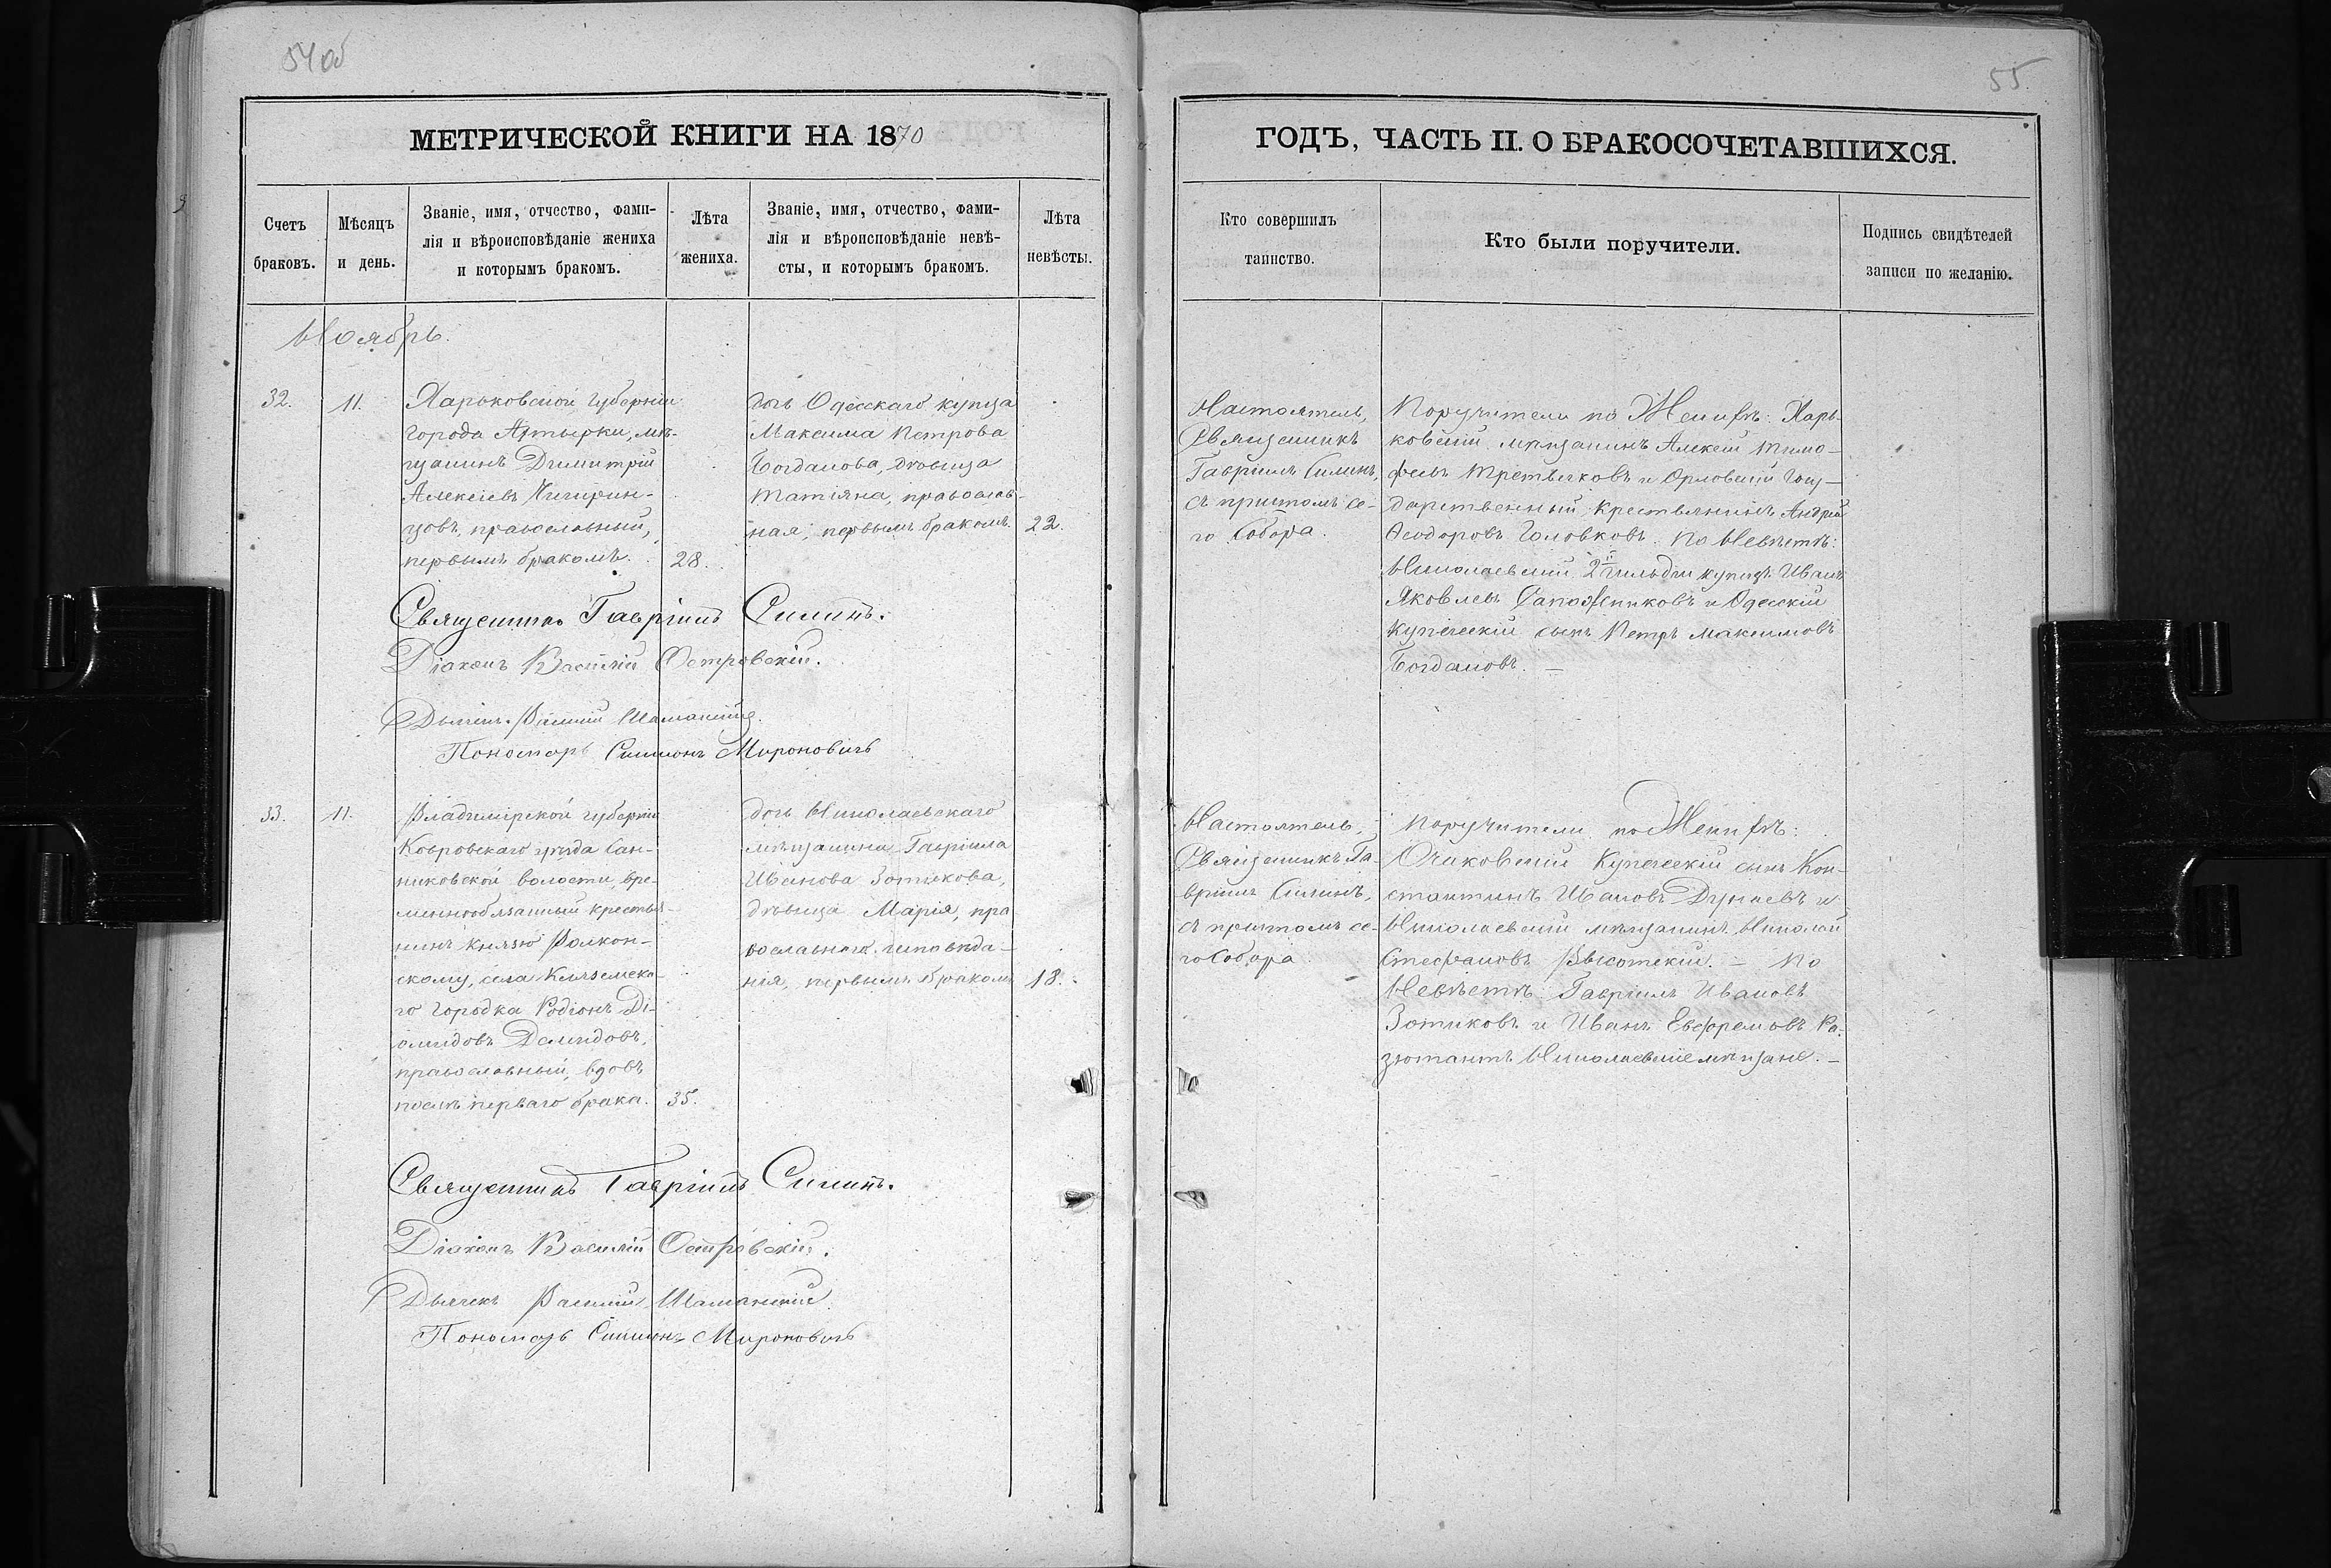 54 об
МЕТРИЧЕСКОЙ КНИГИ НА 1870
Счетъ
браковъ.
Мѣсяцъ
и день.
Званіе, имя, отчество, фами-
лія и вѣроисповѣданіе жениха
и которымъ бракомъ.
Лѣта
жениха.
Званіе, имя, отчество, фами-
лія и вѣроисповѣданіе невѣ-
сты, и которымъ бракомъ.
Лѣта
невѣсты.
Ноябрь.
32.
11.
Харьковской губерніи
города Ахтырки, мѣ-
щанинъ Димитрій
Алексіевъ Чигирин-
цовъ, православный,
первымъ бракомъ.
28.
дочь Одесскаго купца
Максима Петрова
Богданова, дѣвица
Татіяна, православ-
ная, первымъ бракомъ.
22.
Священникъ Гавріилъ Силинъ.
Діаконъ Василій Островскій.
Дьячекъ Василій Шаманскій
Пономарь Симионъ Мироновичъ
33.
11.
Владимірской губерніи
Ковровскаго уѣзда Сан-
никовской волости, вре-
меннообязанный крестья-
нинъ князю Волкон-
скому, села Клязмеска-
го городка Родіонъ Ді-
омидовъ Демидовъ,
православный, вдовъ
послѣ перваго брака.
35.
дочь Николаевскаго
мѣщанина Гавріила
Иванова Зотикова,
дѣвица Марія, пра
вославнаго исповѣда-
нія, первымъ бракомъ
18.
Священникъ Гавріилъ Силинъ.
Діаконъ Василій Островскій.
Дьячекъ Василій Шаманскій
Пономарь Симионъ Мироновичъ
55.
ГОДЪ, ЧАСТЬ II. О БРАКОСОЧЕТАВШИХСЯ.
Кто совершилъ
таинство.
Кто были поручители.
Подпись свидѣтелей
записи по желанію.
Настоятель,
Священникъ
Гавріилъ Силинъ,
съ причтомъ се-
го Собора.
Поручители по Женихѣ: Харь-
ковскій мѣщанинъ Алексій Тимо-
феевъ Третьяковъ и Орловскій Госу-
дарственный крестьянинъ Андрей
Ѳеодоровъ Головковъ. По Невѣстѣ:
Николаевскій 2й гильдіи купецъ Иванъ
Яковлевъ Сапожниковъ и Одесскій
купеческій сынъ Петръ Максимовъ
Богдановъ. —
Настоятель,
Священникъ Га-
вріилъ Силинъ,
съ причтомъ се-
го Собора
Поручители по Женихѣ:
Очаковскій Купеческій сынъ Кон-
стантинъ Ивановъ Дунаевъ и
Николаевскій мѣщанинъ Николай
Стефановъ Высотскій. — По
Невѣстѣ: Гавріилъ Ивановъ
Зотиковъ и Иванъ Евфремовъ
Николаевскіе мѣщане. —